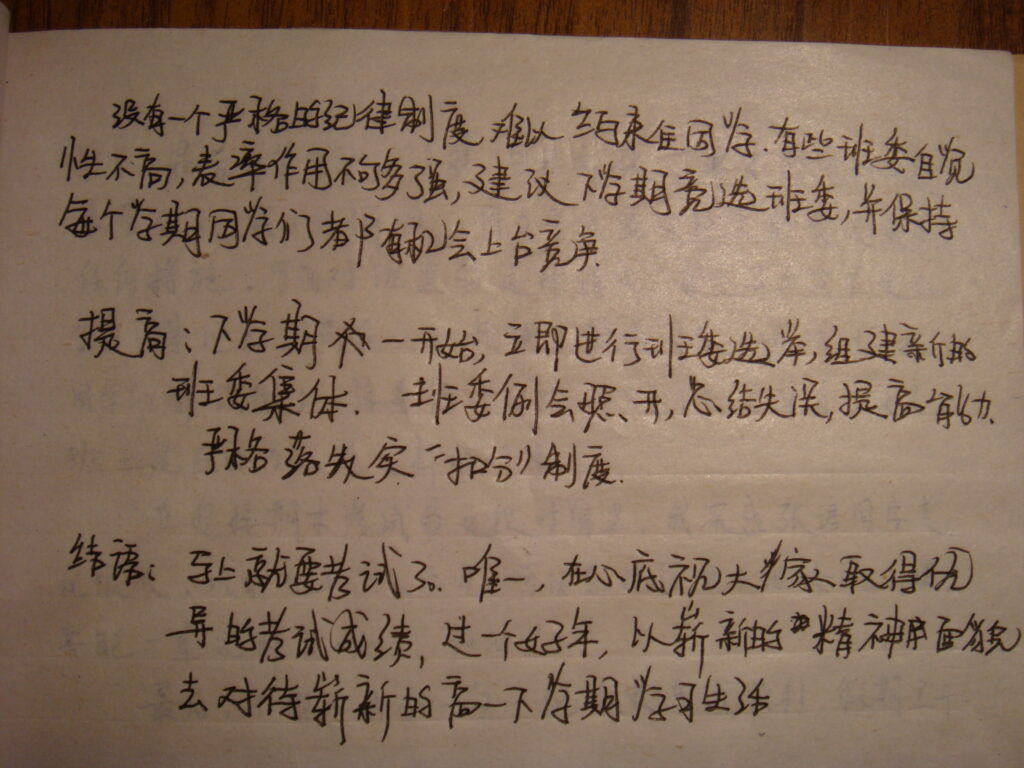 没有一个严格的纪律制度难以约束住同学.有些班委自觉
性不高,表率作用不够多强,建议下学期竞选班委,并保持
每个学期同学们都有机会上台竞争
提高:下学期一开始,立即进行班委选举,组建新的
班委集体. 班委例会照开,总结失误,提高能力.
严格落实“扣分”制度.
结语: 马上就要考试了。唯一,在心底祝大家取得优
异的考试成绩,过一个好年,以崭新的精神面貌
去对待崭新的高一下学期学习生活